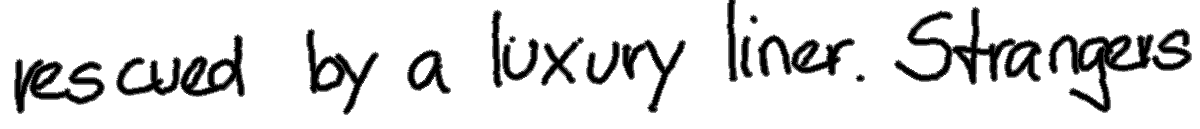 rescued by a luxury liner. Strangers